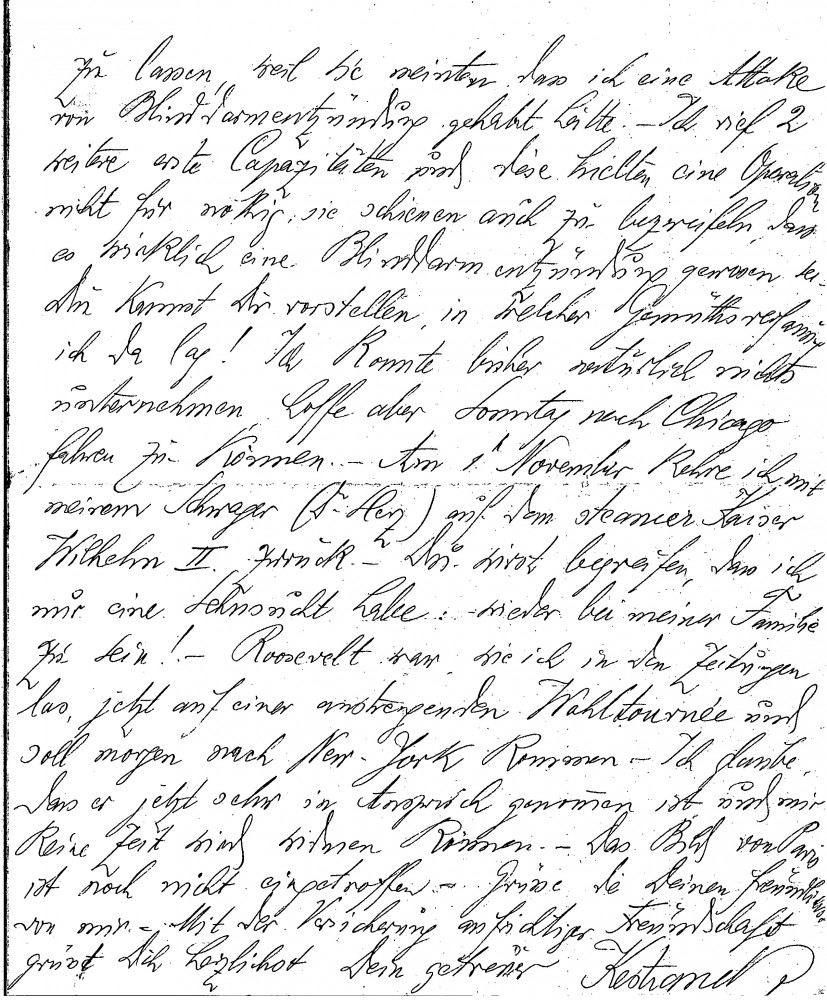 zu lassen, weil sie meinten dass ich eine Attake
von Blinddarmentzündung gehabt hätte. – Ich rief 2
weitere erste Capazitäten und diese hielten eine Operation
nicht für nöthig, sie schienen auch zu bezweifeln, dass
es wirklich eine Blinddarmentzündung gewesen sei.
Du kannst Dir vorstellen, in welcher Gemüthsverfassung
ich da lag! Ich konnte bisher natürlich nichts
unternehmen, hoffe aber Sonntag nach Chicago
fahren zu können. – Am 1t November kehre ich mit
meinem Schwager (Dr Herz) auf dem steamer Kaiser
Wilhelm II. zurück. – Du wirst begreifen, dass ich
mir eine Sehnsucht habe: wieder bei meiner Familie
zu sein! – Roosevelt war, wie ich in den Zeitungen
las, jetzt auf einer anstrengenden Wahltournée und
soll morgen nach New-York kommen – Ich glaube,
dass er jetzt sehr in Anspruch genommen ist und mir
keine Zeit wird widmen können. – Das Bild von Paris
ist noch nicht eingetroffen – Grüsse die Deinen freundlichst
von mir. – Mit der Versicherung aufrichtiger Freundschaft
grüsst Dich herzlichst Dein getreuer